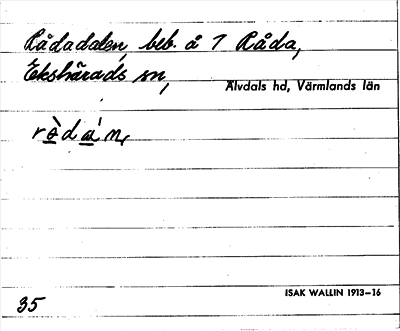 Rådadalen, beb. å 7 Råda,
Ekshärads sn,
Älvdals hd, Värmlands län
35
ISAK WALLIN 1913–16